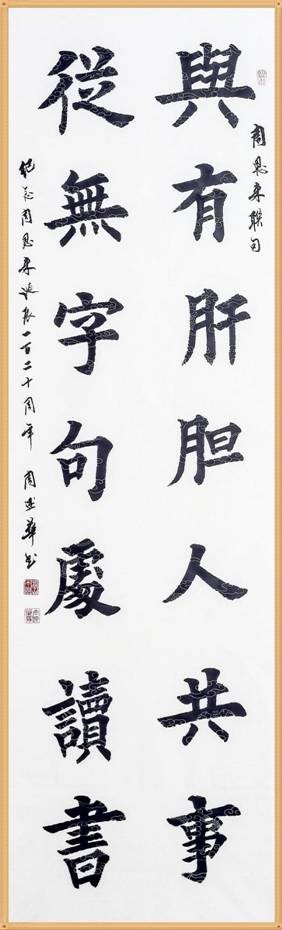 與有肝胆人共事
周恩来联句
從無字句處讀書
纪念周恩来诞辰一百二十周年